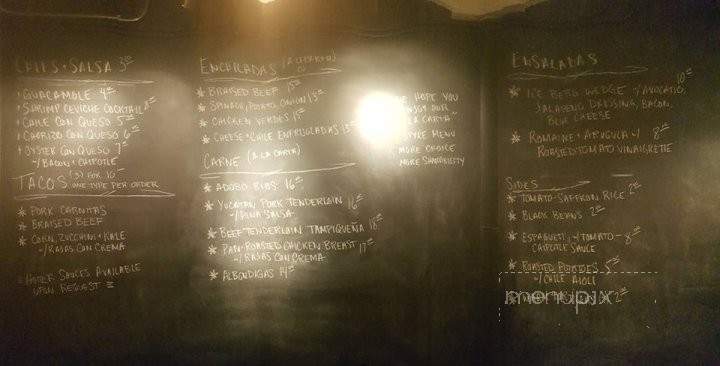 CHIPS + SALSA 3
+ GUACAMOLE 4
+ SHRIMP CEVICHE COCKTAIL 8
+ CHILE CON QUESO 5
+ CHORIZO CON QUESO 6
+ OYSTER CON QUESO 7
w/ BACON + CHIPOTLE
TACOS (3) FOR 10
ONE TYPE PER ORDER
* PORK CARNITAS
* BRAISED BEEF
* CORN, ZUCCHINI + KALE
w/ RAJAS CON CREMA
SAUCES AVAILABLE
UPON REQUEST
ENCHILADAS (A LA CARTA)
* BRAISED BEEF 15
* SPINACH, POTATO, ONION 13
* CHICKEN VERDES 15
* CHEESE + CHILE ENFRIJOLADAS 13
CARNE (A LA CARTA)
* ADOBO RIBS 16
* YUCATAN PORK TENDERLOIN 16
w/ PINA SALSA
* BEEF TENDERLOIN TAMPIQUEÑA 18
* PAN-ROASTED CHICKEN BREAST 17
w/ RAJAS CON CREMA
* ALBONDIGAS 14
HOPE YOU
OUR
LA CARTA
STYLE MENU
MORE CHOICE
MORE SHARABILITY
ENSALADAS
* ICE BERG WEDGE w/ AVOCADO, 10
JALAPENO DRESSING, BACON,
BLUE CHEESE
* ROMAINE + ARUGULA w/ 8
ROASTED TOMATO VINAIGRETTE
SIDES
* TOMATO-SAFFRON RICE 2
* BLACK BEANS 2
* ESPAGUETI w/ TOMATO- 8
CHIPOTLE SAUCE
* ROASTED POTATOES 5
w/ CHILE AIOLI
2
menupix